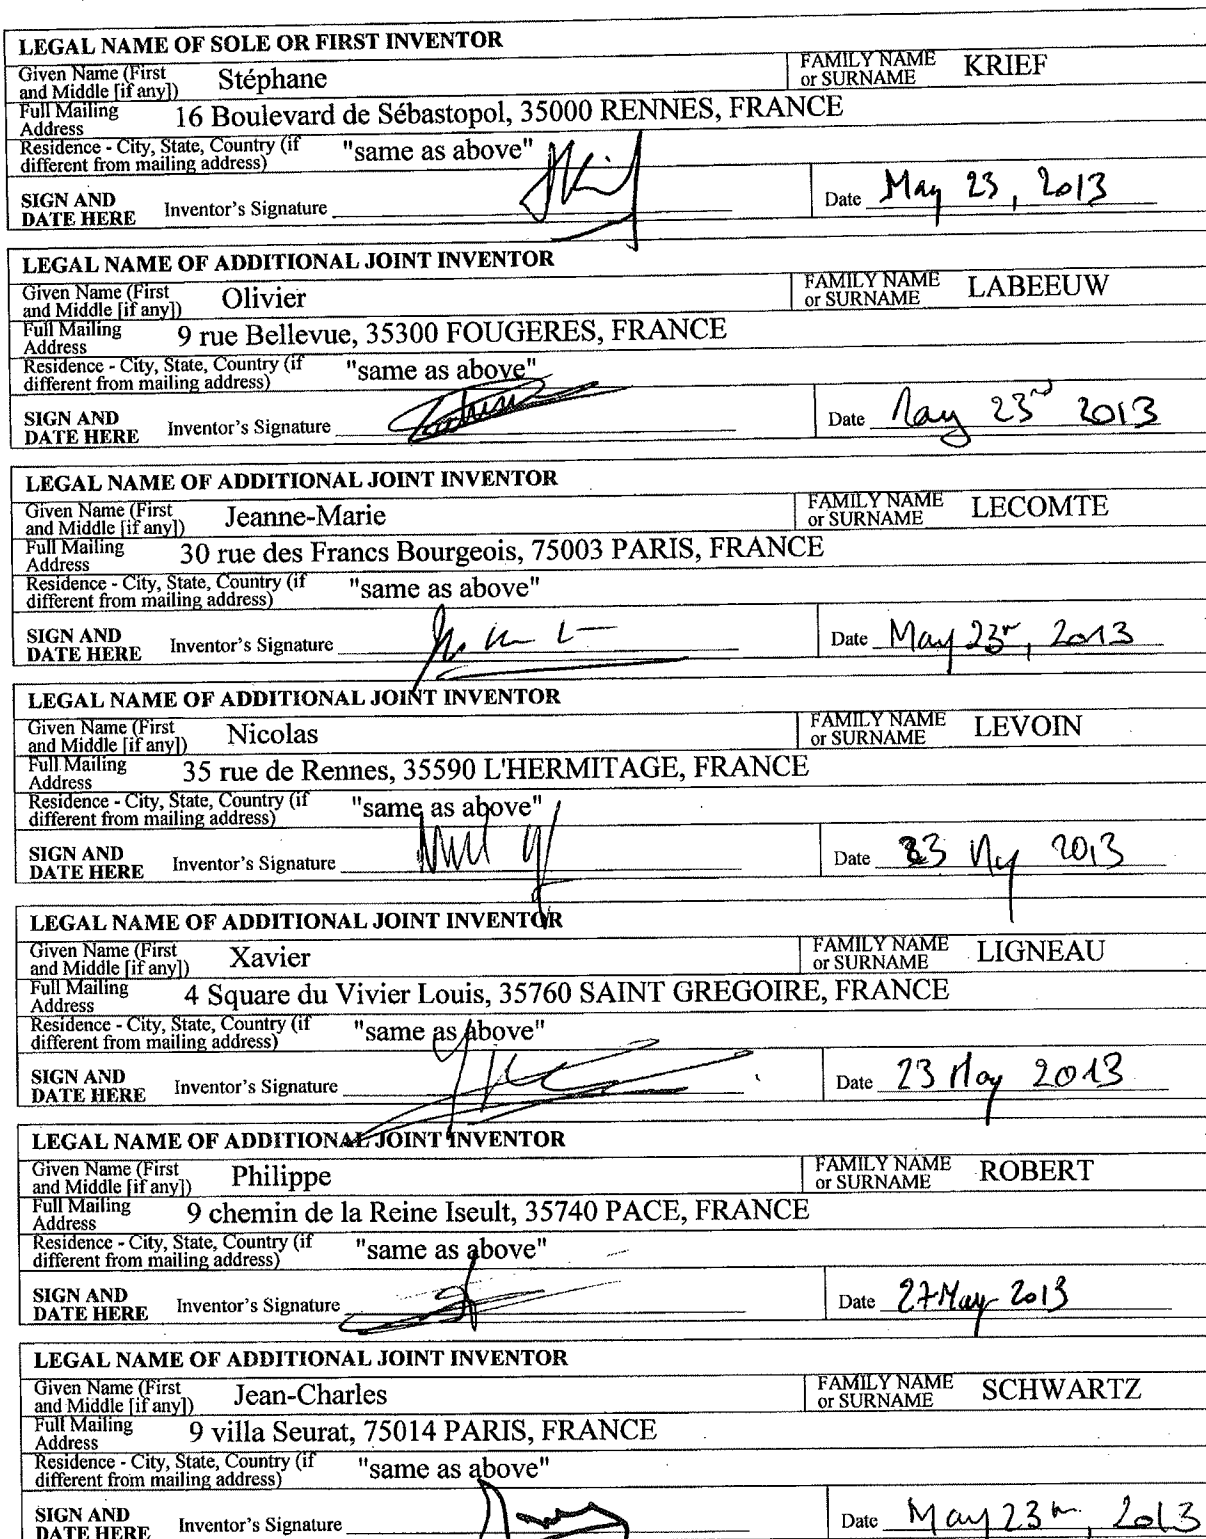 LEGAL NAME OF SOLE OR FIRST INVENTOR
Given Name (First and Middle [if any]) Stéphane FAMILY NAME or SURNAME KRIEF
Full Mailing Address 16 Boulevard de Sébastopol, 35000 RENNES, FRANCE
Residence - City, State, Country (if different from mailing address) "same as above"
SIGN AND DATE HERE Inventor's Signature Date May 23, 2013
LEGAL NAME OF ADDITIONAL JOINT INVENTOR
Given Name (First and Middle [if any]) Olivier FAMILY NAME or SURNAME LABEEUW
Full Mailing Address 9 rue Bellevue, 35300 FOUGERES, FRANCE
Residence - City, State, Country (if different from mailing address) "same as above"
SIGN AND DATE HERE Inventor's Signature Date May 23rd 2013
LEGAL NAME OF ADDITIONAL JOINT INVENTOR
Given Name (First and Middle [if any]) Jeanne-Marie FAMILY NAME or SURNAME LECOMTE
Full Mailing Address 30 rue des Francs Bourgeois, 75003 PARIS, FRANCE
Residence - City, State, Country (if different from mailing address) "same as above"
SIGN AND DATE HERE Inventor's Signature Date May 23, 2013
LEGAL NAME OF ADDITIONAL JOINT INVENTOR
Given Name (First and Middle [if any]) Nicolas FAMILY NAME or SURNAME LEVOIN
Full Mailing Address 35 rue de Rennes, 35590 L'HERMITAGE, FRANCE
Residence - City, State, Country (if different from mailing address) "same as above"
SIGN AND DATE HERE Inventor's Signature Date 23 My 2013
LEGAL NAME OF ADDITIONAL JOINT INVENTOR
Given Name (First and Middle [if any]) Xavier FAMILY NAME or SURNAME LIGNEAU
Full Mailing Address 4 Square du Vivier Louis, 35760 SAINT GREGOIRE, FRANCE
Residence - City, State, Country (if different from mailing address) "same as above"
SIGN AND DATE HERE Inventor's Signature Date 23 May 2013
LEGAL NAME OF ADDITIONAL JOINT INVENTOR
Given Name (First and Middle [if any]) Philippe FAMILY NAME or SURNAME ROBERT
Full Mailing Address 9 chemin de la Reine Iseult, 35740 PACE, FRANCE
Residence - City, State, Country (if different from mailing address) "same as above"
SIGN AND DATE HERE Inventor's Signature Date 27 May 2013
LEGAL NAME OF ADDITIONAL JOINT INVENTOR
Given Name (First and Middle [if any]) Jean-Charles FAMILY NAME or SURNAME SCHWARTZ
Full Mailing Address 9 villa Seurat, 75014 PARIS, FRANCE
Residence - City, State, Country (if different from mailing address) "same as above"
SIGN AND DATE HERE Inventor's Signature Date May 23, 2013